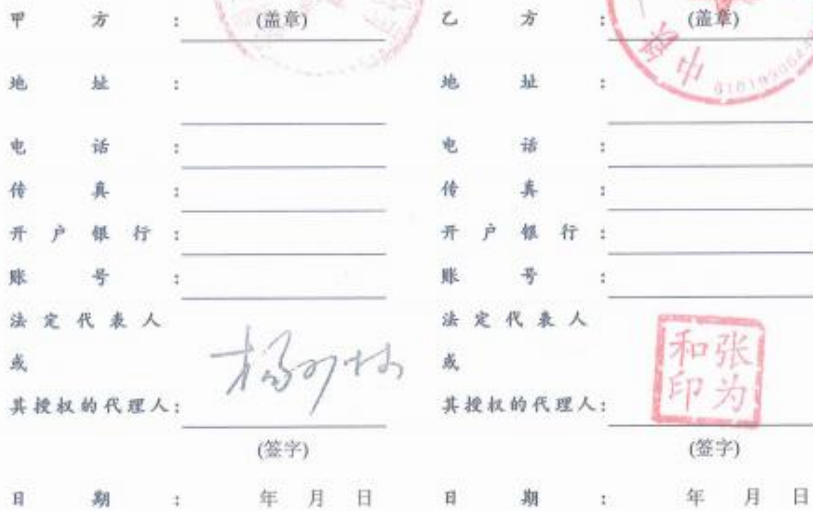 甲方： (盖章)
地址：
电话：
传真：
开户银行：
账号：
法定代表人
或
其授权的代理人：
(签字)
日期： 年 月 日
乙方： (盖章)
中
地址：
电话：
传真：
开户银行：
账号：
法定代表人
或
其授权的代理人：
张为
和印
(签字)
日期： 年 月 日